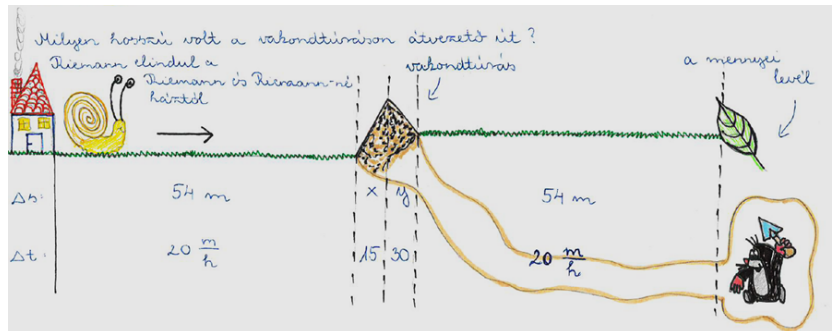 Milyen hosszú volt a vakondtúráson átvezető út?
Riemann elindul a
Riemann és Riemann-né
háztól
vakondtúrás
a mennyei
levél
Δs:
54 m
x
y
54 m
Δt:
20 m/h
15
30
20 m/h